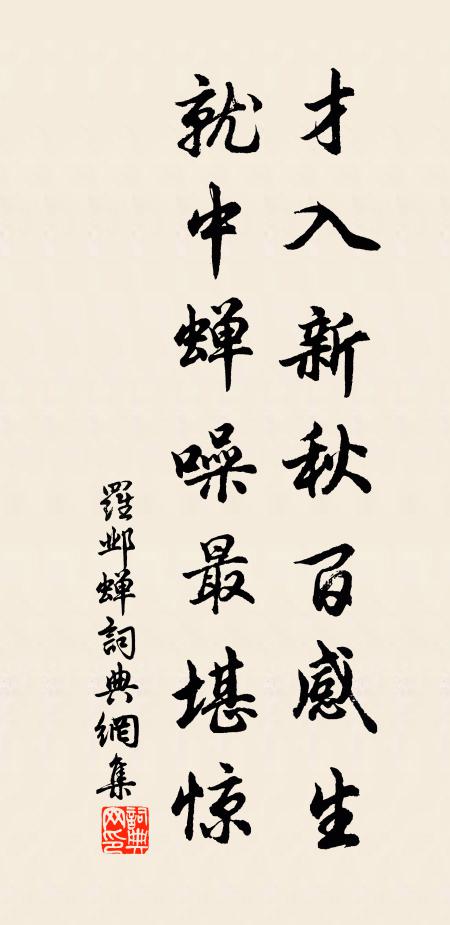 才入新秋百感生
就中蝉噪最堪惊
羅邺蝉詞典網集
詞典
网印